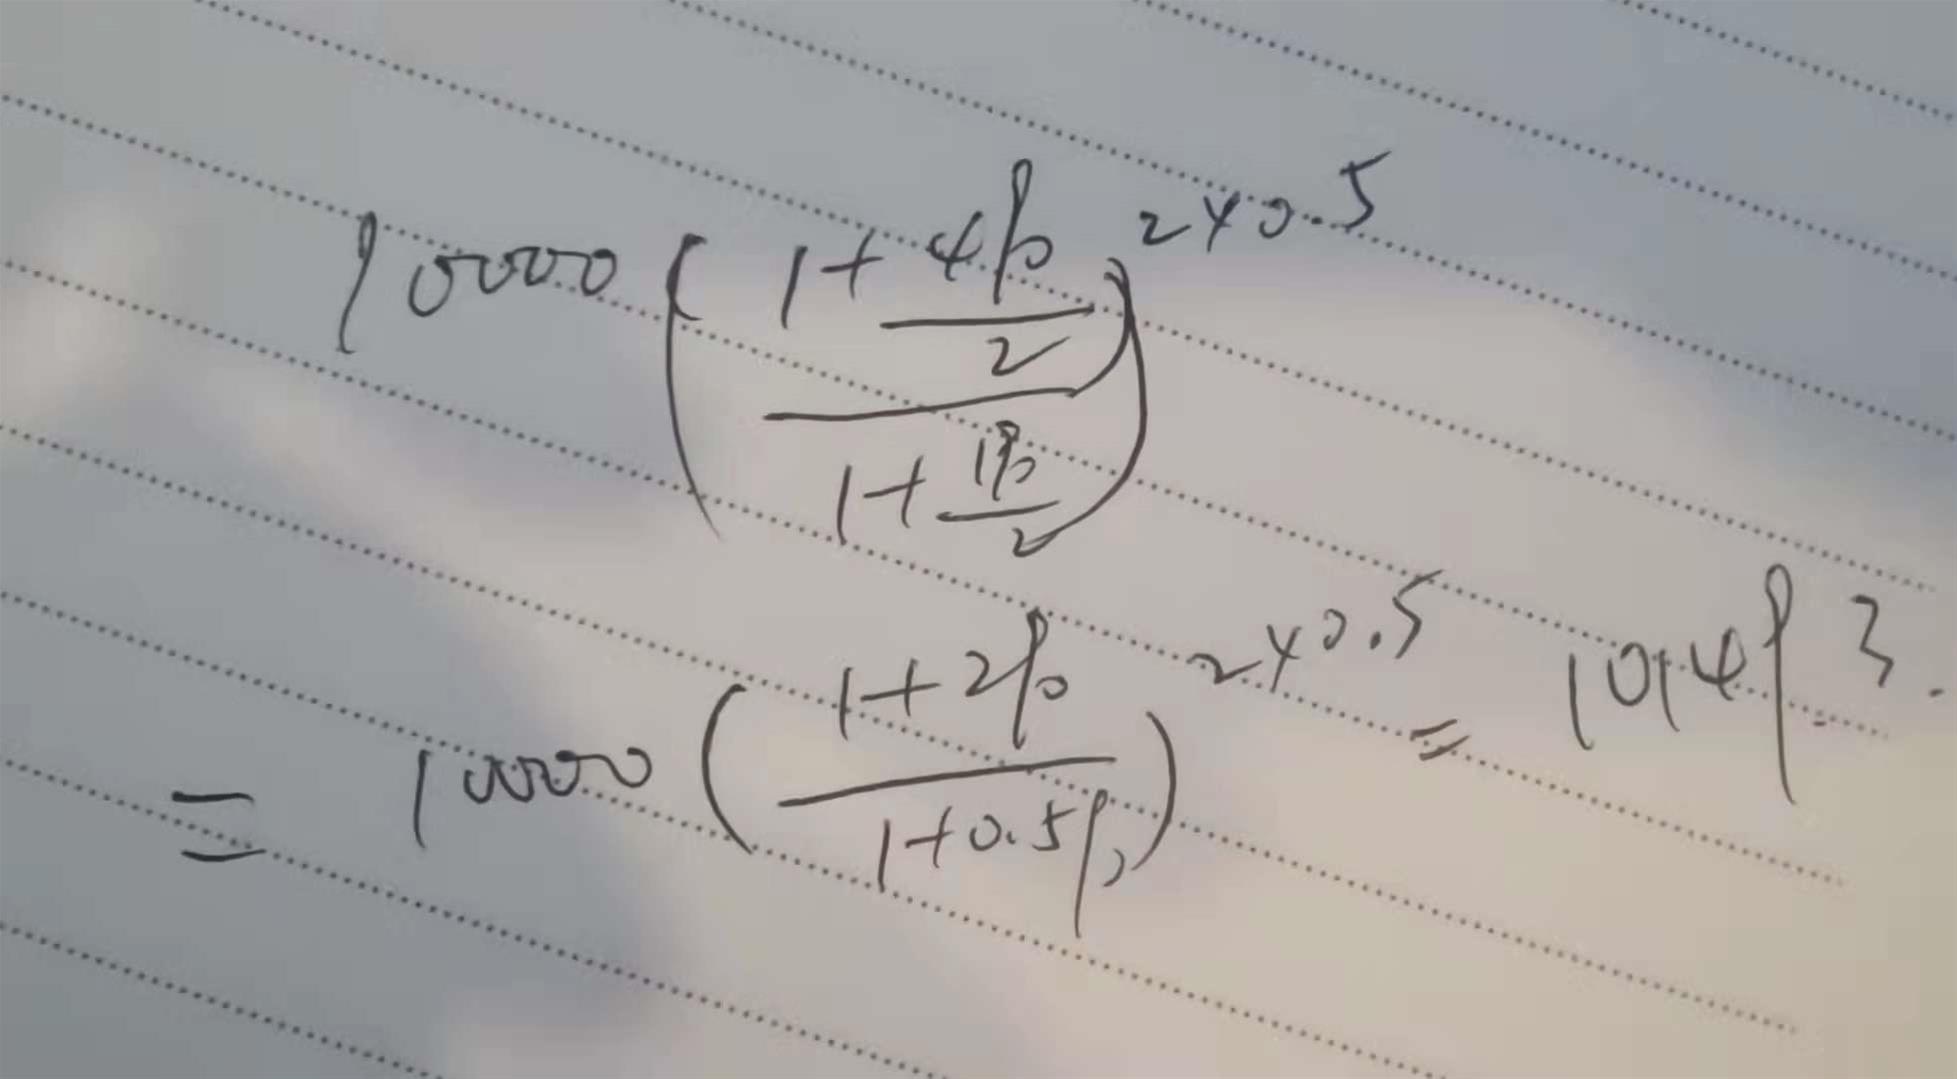 10000 ( (1 + 4% / 2) / (1 + 1% / 2) )^2×0.5
= 10000 ( (1 + 2%) / (1 + 0.5%) )^2×0.5 = 10149.3.